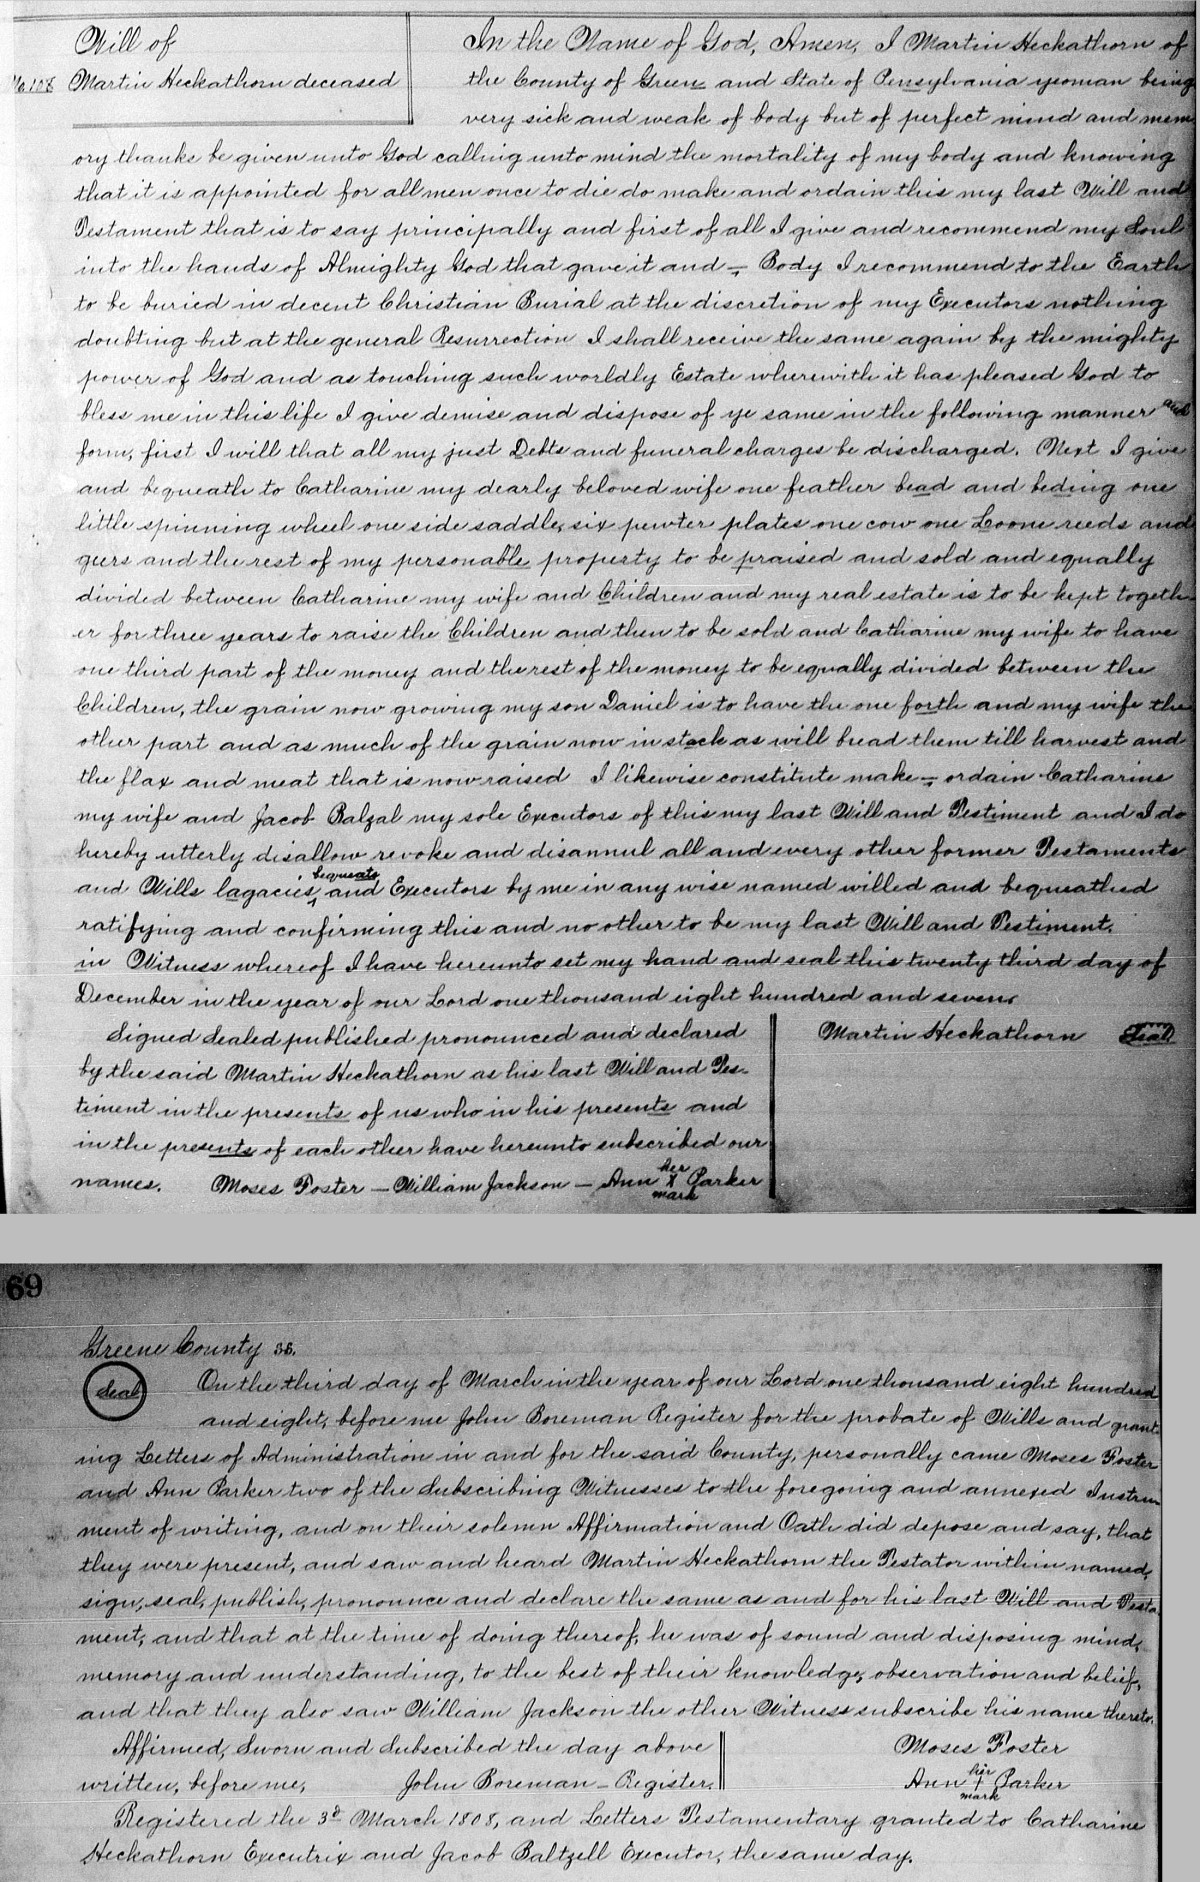 Will of
No. 108 Martin Heckathorn deceased
In the Name of God, Amen, I Martin Heckathorn of
the County of Green and State of Pensylvania yeoman being
very sick and weak of body but of perfect mind and mem
ory thanks be given unto God calling unto mind the mortality of my body and knowing
that it is appointed for all men once to die do make and ordain this my last Will and
Testament that is to say principally and first of all I give and recommend my Soul
into the hands of Almighty God that gave it and – Body I recommend to the Earth
to be buried in decent Christian Burial at the discretion of my Executors nothing
doubting but at the general Resurrection I shall receive the same again by the mighty
power of God and as touching such worldly Estate wherewith it has pleased God to
bless me in this life I give demise and dispose of ye same in the following manner and
form, first I will that all my just Debts and funeral charges be discharged. Next I give
and bequeath to Catharine my dearly beloved wife one feather bead and beding one
little spinning wheel one side saddle, six pewter plates one cow one Loone reeds and
geers and the rest of my personable property to be praised and sold and equally
divided between Catharine my wife and Children and my real estate is to be kept togeth
er for three years to raise the Children and then to be sold and Catharine my wife to have
one third part of the money and the rest of the money to be equally divided between the
Children, the grain now growing my son Daniel is to have the one forth and my wife the
other part and as much of the grain now in stack as will bread them till harvest and
the flax and meat that is now raised I likewise constitute make – ordain Catharine
my wife and Jacob Balzal my sole Executors of this my last Will and Testiment and I do
hereby utterly disallow revoke and disannul all and every other former Testaments
and Wills lagacies, bequeats and Executors by me in any wise named willed and bequeathed
ratifying and confirming this and no other to be my last Will and Testiment.
in Witness whereof I have hereunto set my hand and seal this twenty third day of
December in the year of our Lord one thousand eight hundred and seven.
Signed Sealed published pronounced and declared
by the said Martin Heckathorn as his last Will and Tes-
timent in the presents of us who in his presents and
in the presents of each other have hereunto subscribed our
names. Moses Foster – William Jackson – Ann her X mark Parker
Martin Heckathorn Seal
69
Greene County ss.
Seal On the third day of March in the year of our Lord one thousand eight hundred
and eight, before me John Boreman Register for the probate of Wills and grant
ing Letters of Administration in and for the said County, personally came Moses Foster
and Ann Parker two of the Subscribing Witnesses to the foregoing and annexed Instru
ment of writing, and on their solemn Affirmation and Oath did depose and say, that
they were present, and saw and heard Martin Heckathorn the Testator within named,
sign, seal, publish, pronounce and declare the same as and for his last Will and Testa
ment, and that at the time of doing thereof, he was of sound and disposing mind,
memory and understanding, to the best of their knowledge, observation and belief,
and that they also saw William Jackson the other Witness subscribe his name thereto.
Affirmed, Sworn and Subscribed the day above
written, before me, John Boreman – Register.
Moses Foster
Ann her + mark Parker
Registered the 3d March 1808, and Letters Testamentary granted to Catharine
Heckathorn Executrix and Jacob Baltzell Executor, the same day.